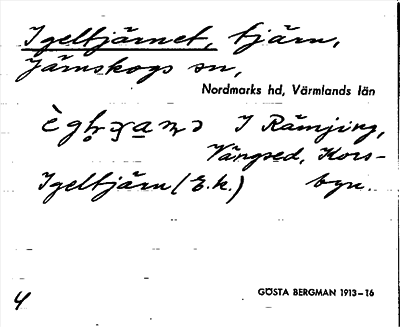 Igeltjärnet, tjärn,
Järnskogs sn,
Nordmarks hd, Värmlands län
I Rämjing,
Vängsed, Kors-
Igeltjärn (E.k.) byn.
4
GÖSTA BERGMAN 1913–16